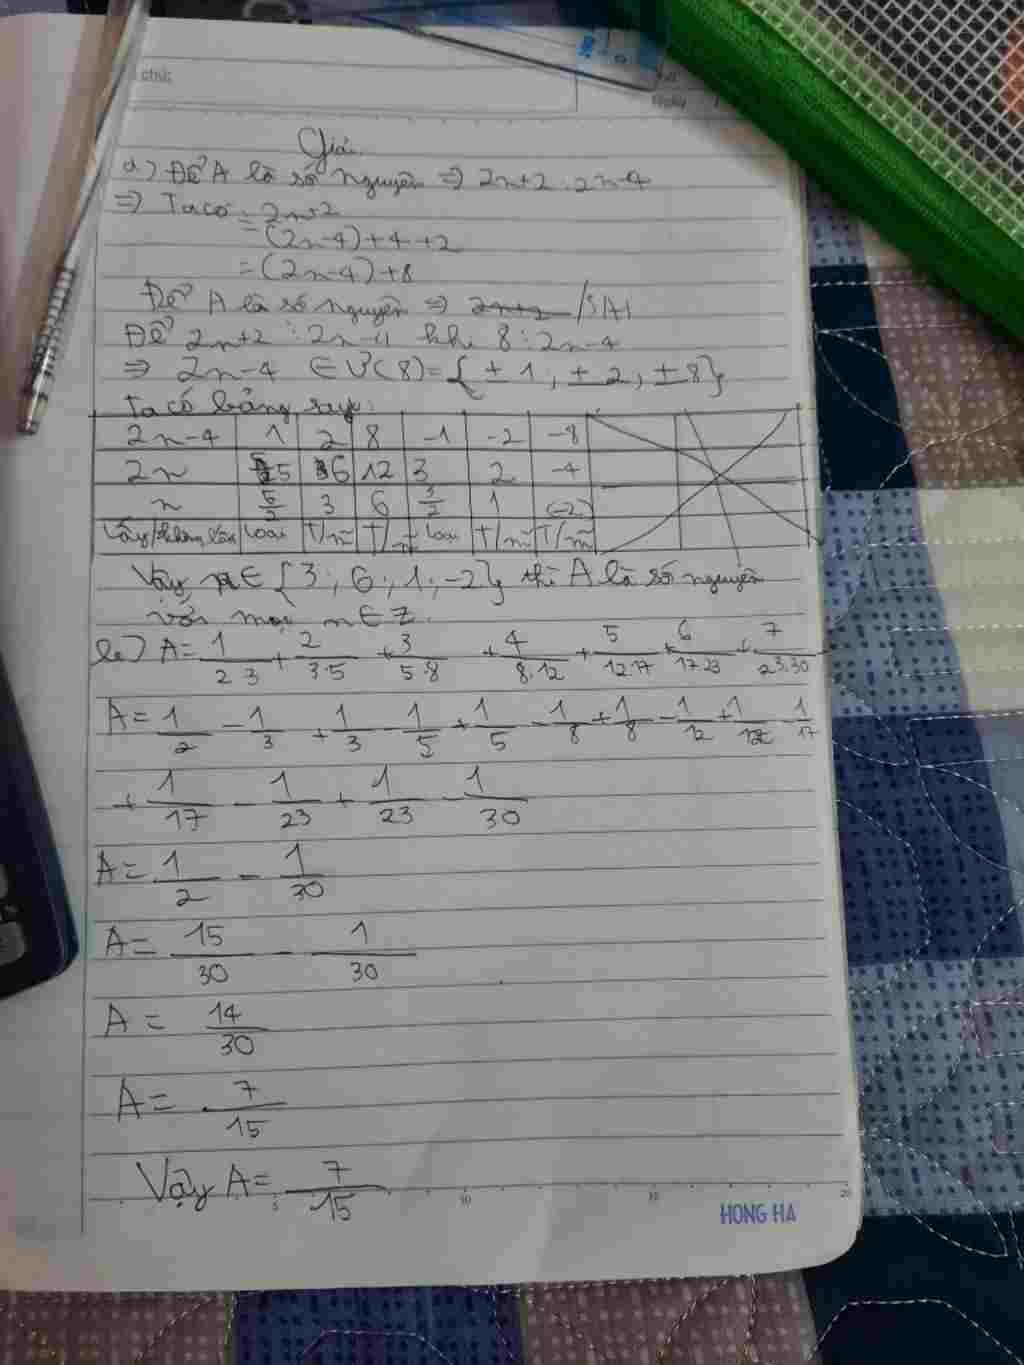 chức
Ngày
Giải
a) Để A là số nguyên => 2n+2 ⋮ 2n-4
=> Ta có = 2n+2
= (2n-4)+4+2
= (2n-4)+8
Để A là số nguyên =>
Để 2n+2 ⋮ 2n-4 khi 8 ⋮ 2n-4
=> 2n-4 ∈ Ư(8) = {±1; ±2; ±8}
Ta có bảng sau:
2n-4 1 2 8 -1 -2 -8
2n 5 6 12 3 2 -4
n 5/2 3 6 3/2 1 (-2)
Lấy/không lấy loại T/mãn T/mãn loại T/mãn T/mãn
Vậy n ∈ {3; 6; 1; -2} thì A là số nguyên
với mọi n ∈ Z.
b) A = 1/2.3 + 2/3.5 + 3/5.8 + 4/8.12 + 5/12.17 + 6/17.23 + 7/23.30
A = 1/2 - 1/3 + 1/3 - 1/5 + 1/5 - 1/8 + 1/8 - 1/12 + 1/12 - 1/17
+ 1/17 - 1/23 + 1/23 - 1/30
A = 1/2 - 1/30
A = 15/30 - 1/30
A = 14/30
A = 7/15
Vậy A = 7/15
5 10 15 20
HONG HA